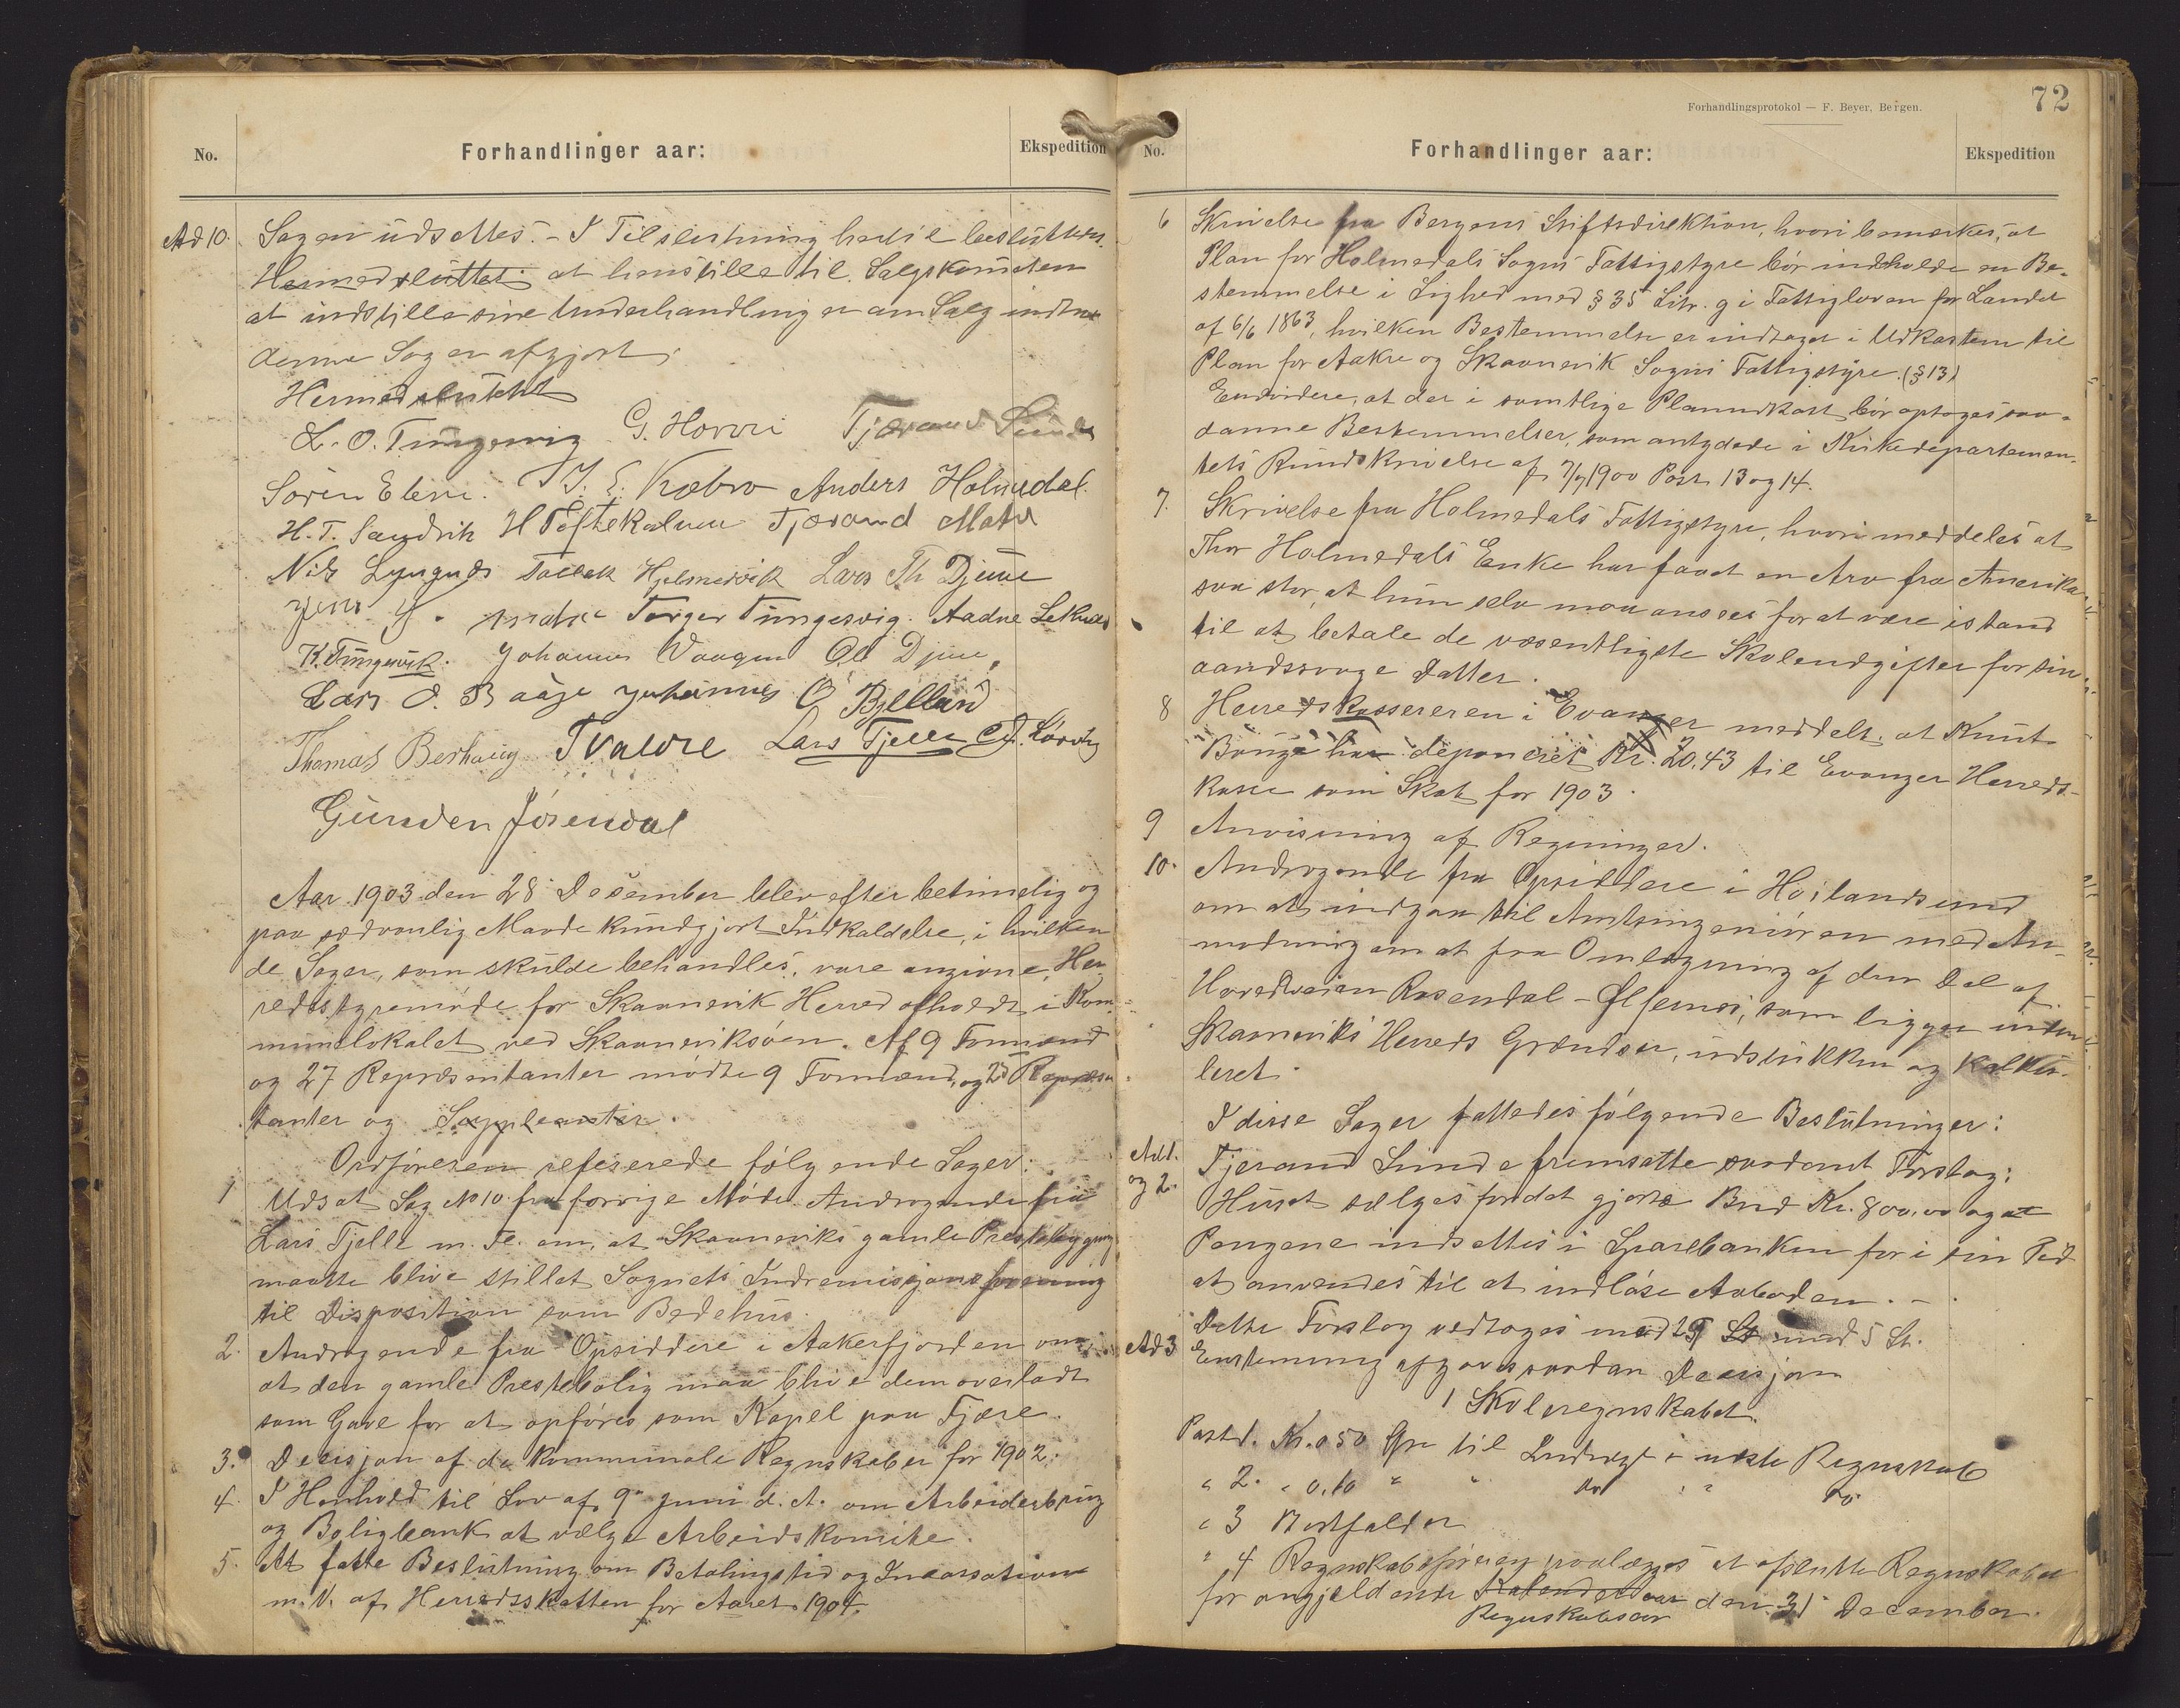 No.
Forhandlinger aar:
Ekspedition
Ad 10. Sagen udsættes. – I Tilslutning hertil besluttes
Hermed sluttet at henstille til Salgskomiteen
at indstille sine Underhandlinger om Salg indtil
denne Sag er afgjort.
Hermed sluttet
L. O. Tungesvig G. Havrri Tjærand Sunde
Søren Etene. J. E. Kæbro Anders Holmedal.
H. T. Sandvik H Toftekalven Tjerand Matre
Nils Lyngnæs Tollak Hjelmevik Lars Th Djuve
Jens Torger Tungesvig. Aadne Leknes
K. Tungesvik. Johannes Vaagen Ole Djuve,
Lars O. Baage Johannes O Bjelland
Thomas Berhaug T Valvre Lars Fjelle
Gunder Jøsendal
Aar 1903 den 28 Desember blev efter betimelig og
paa sædvanlig Maade kundgjort Indkaldelse, i hvilken
de Sager, som skulde behandles, vare angivne, Her-
redsstyremøde for Skaanevik Herred afholdt i Kom-
munelokalet ved Skaaneviksøen. Af 9 Formænd
og 27 Repræsentanter mødte 9 Formænd og 25 Repræsen
tanter og Suppleanter.
Ordføreren refererede følgende Sager:
1 Udsat Sag No 10 fra forrige Møde. Andragende fra
Lars Fjelle m. Fl. om, at Skaaneviks gamle Prestebygning
maatte blive stillet Sognets Indremissjonsforening
til Disposition som Bedehus.
2. Andragende fra Opsiddere i Aakerfjorden om,
at den gamle Prestebolig maa blive dem overladt
som Gave for at opføres som Kapel paa Fjære.
3. Decisjon af de kommunale Regnskaber for 1902.
4. I Henhold til Lov af 9de Juni d. A. om Arbeiderbrug
og Boligbank at vælge Arbeidskomite.
5. At fatte Beslutning om Betalingstid og Incassation
m. V. af Herredsskatten for Aaret 1904.
Forhandlingsprotokol — F. Beyer, Bergen.
72
No.
Forhandlinger aar:
Ekspedition
6 Skrivelse fra Bergens Stiftsdirektion, hvori bemærkes, at
Plan for Holmedals Sogns Fattigstyre bør indeholde en Be-
stemmelse i Lighed med § 35 Litr. g i Fattigloven for Landet
af 6/6 1863, hvilken Bestemmelse er indtaget i Udkastene til
Plan for Aakre og Skaanevik Sogns Fattigstyre. (§ 13)
Endvidere, at der i samtlige Planudkast bør optages saa-
danne Bestemmelser, som antydede i Kirkedepartemen-
tets Rundskrivelse af 7/7 1900 Post 13 og 14.
7. Skrivelse fra Holmedals Fattigstyre, hvori meddeles at
Thor Holmedals Enke har faaet en Arv fra Amerika
saa stor, at hun selv maa ansees for at være istand
til at betale de væsentligste Skoleudgifter for sin
aandssvage Datter.
8 Herredskassereren i Evanger meddelt, at Knut
Bauge har deponeret Kr. 20,43 til Evanger Herreds-
kasse som Skat for 1903.
9 Anvisning af Regninger.
10. Andragende fra Opsiddere i Høilandsund
om at indgaa til Amtsingeniøren med An-
modning om at faa Omlægning af den Del af
Hovedveien Rosendal – Ølfernes, som ligger inden
Skaaneviks Herreds Grændser, udstukken og kalku-
leret.
I disse Sager fattedes følgende Beslutninger:
Ad 1.
og 2. Tjerand Sunde fremsatte saadant Forslag:
Huset sælges for det gjorte Bud Kr. 800,00 og at
Pengene indsættes i Sparebanken for i sin Tid
at anvendes til at indløse Aaboden. –
Dette Forslag vedtoges med 29 St. mod 5 St.
Ad 3 Enstemmig afgaves saadan Decisjon
1 Skoleregnskabet.
Post 1. Kr. 0 50 Øre til Indtægt i næste Regnskab
" 2. " 0,10 " " do " " do
" 3 Bortfalder
" 4 Regnskabsføreren paalægges at afslutte Regnskabet
for angjeldende Kalenderaar den 31 December.
Regnskabsaar